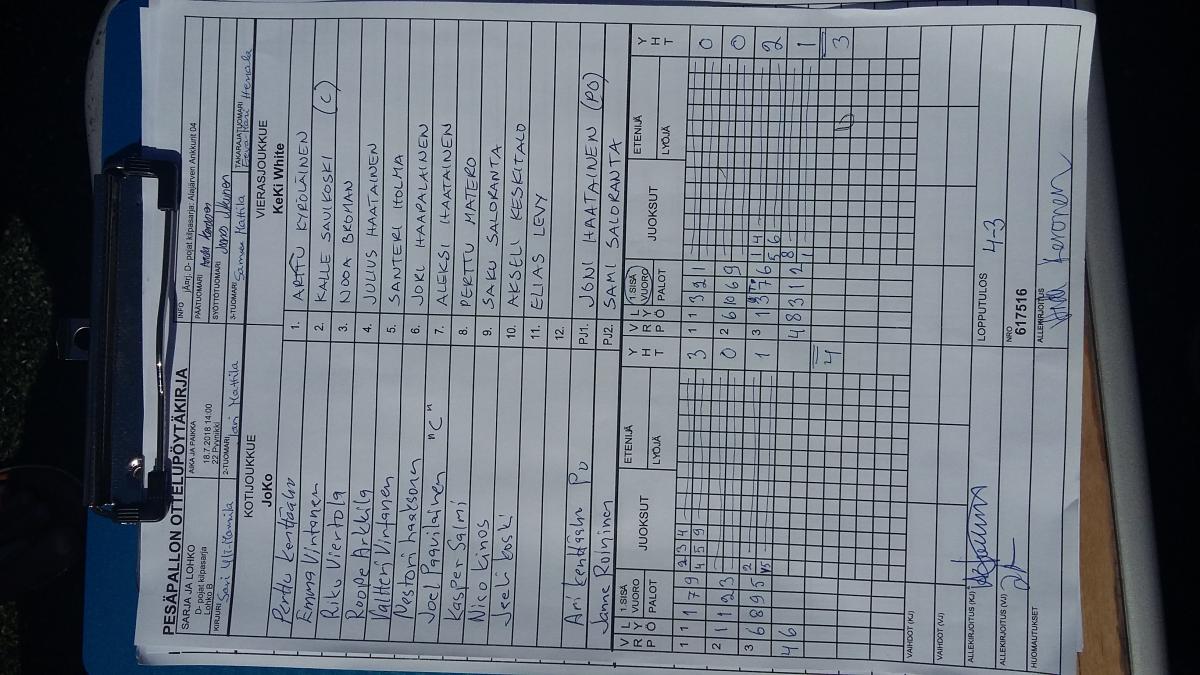 PESÄPALLON OTTELUPÖYTÄKIRJA
SARJA JA LOHKO
D- pojat kilpasarja
Lohko B
AIKA JA PAIKKA
18.7.2018 14:00
22 Pyynikki
INFO
jÄrj. D- pojat kilpasarja: Alajärven Ankkurit 04
PÄÄTUOMARI
SYÖTTÖTUOMARI
KIRJURI
2-TUOMARI Jari Mattila
3-TUOMARI Mattila
TAKARAJATUOMARI
KOTIJOUKKUE
JoKo
VIERASJOUKKUE
KeKi White
Penttu Kenttäaho 1. ARTTU KYRÖLÄINEN
Emma Vintanen 2. KALLE SAVIKOSKI (C)
Riku Viertola 3. NOOA BROMAN
Roope Arkkila 4. JULIUS HAATAINEN
Valtteri Vintanen 5. SANTERI HOLMA
Nestori 6. JORI HAAPALAINEN
Joel Paavilainen "C" 7. ALEKSI HAATAINEN
Kasper Salmi 8. PERTTU MATERO
Nico Kinos 9. SAKU SALORANTA
Jeeli Koski 10. AKSELI KESKITALO
11. ELIAS LEVY
12.
Ari Kenttäaho PJ1. JONI HAATAINEN (PO)
Janne PJ2. SAMI SALORANTA
VRP LYÖ 1.SISÄ VUORO PALOT JUOKSUT ETENIJÄ LYÖJÄ YHT
VRP LYÖ 1.SISÄ VUORO PALOT JUOKSUT ETENIJÄ LYÖJÄ YHT
1 1 1 7 9 2 3 4 3
4 5 9
1 1 3 9 1 0
2 1 1 2 3 0
2 6 10 6 9 0
3 6 8 9 5 2 1
3 1 3 7 6 1 4 2
5 6
4 6
4 8 3 1 2 8 1
1
4
3
VAIHDOT (KJ)
VAIHDOT (VJ)
ALLEKIRJOITUS (KJ)
ALLEKIRJOITUS (VJ)
HUOMAUTUKSET
LOPPUTULOS 4-3
NRO
617516
ALLEKIRJOITUS